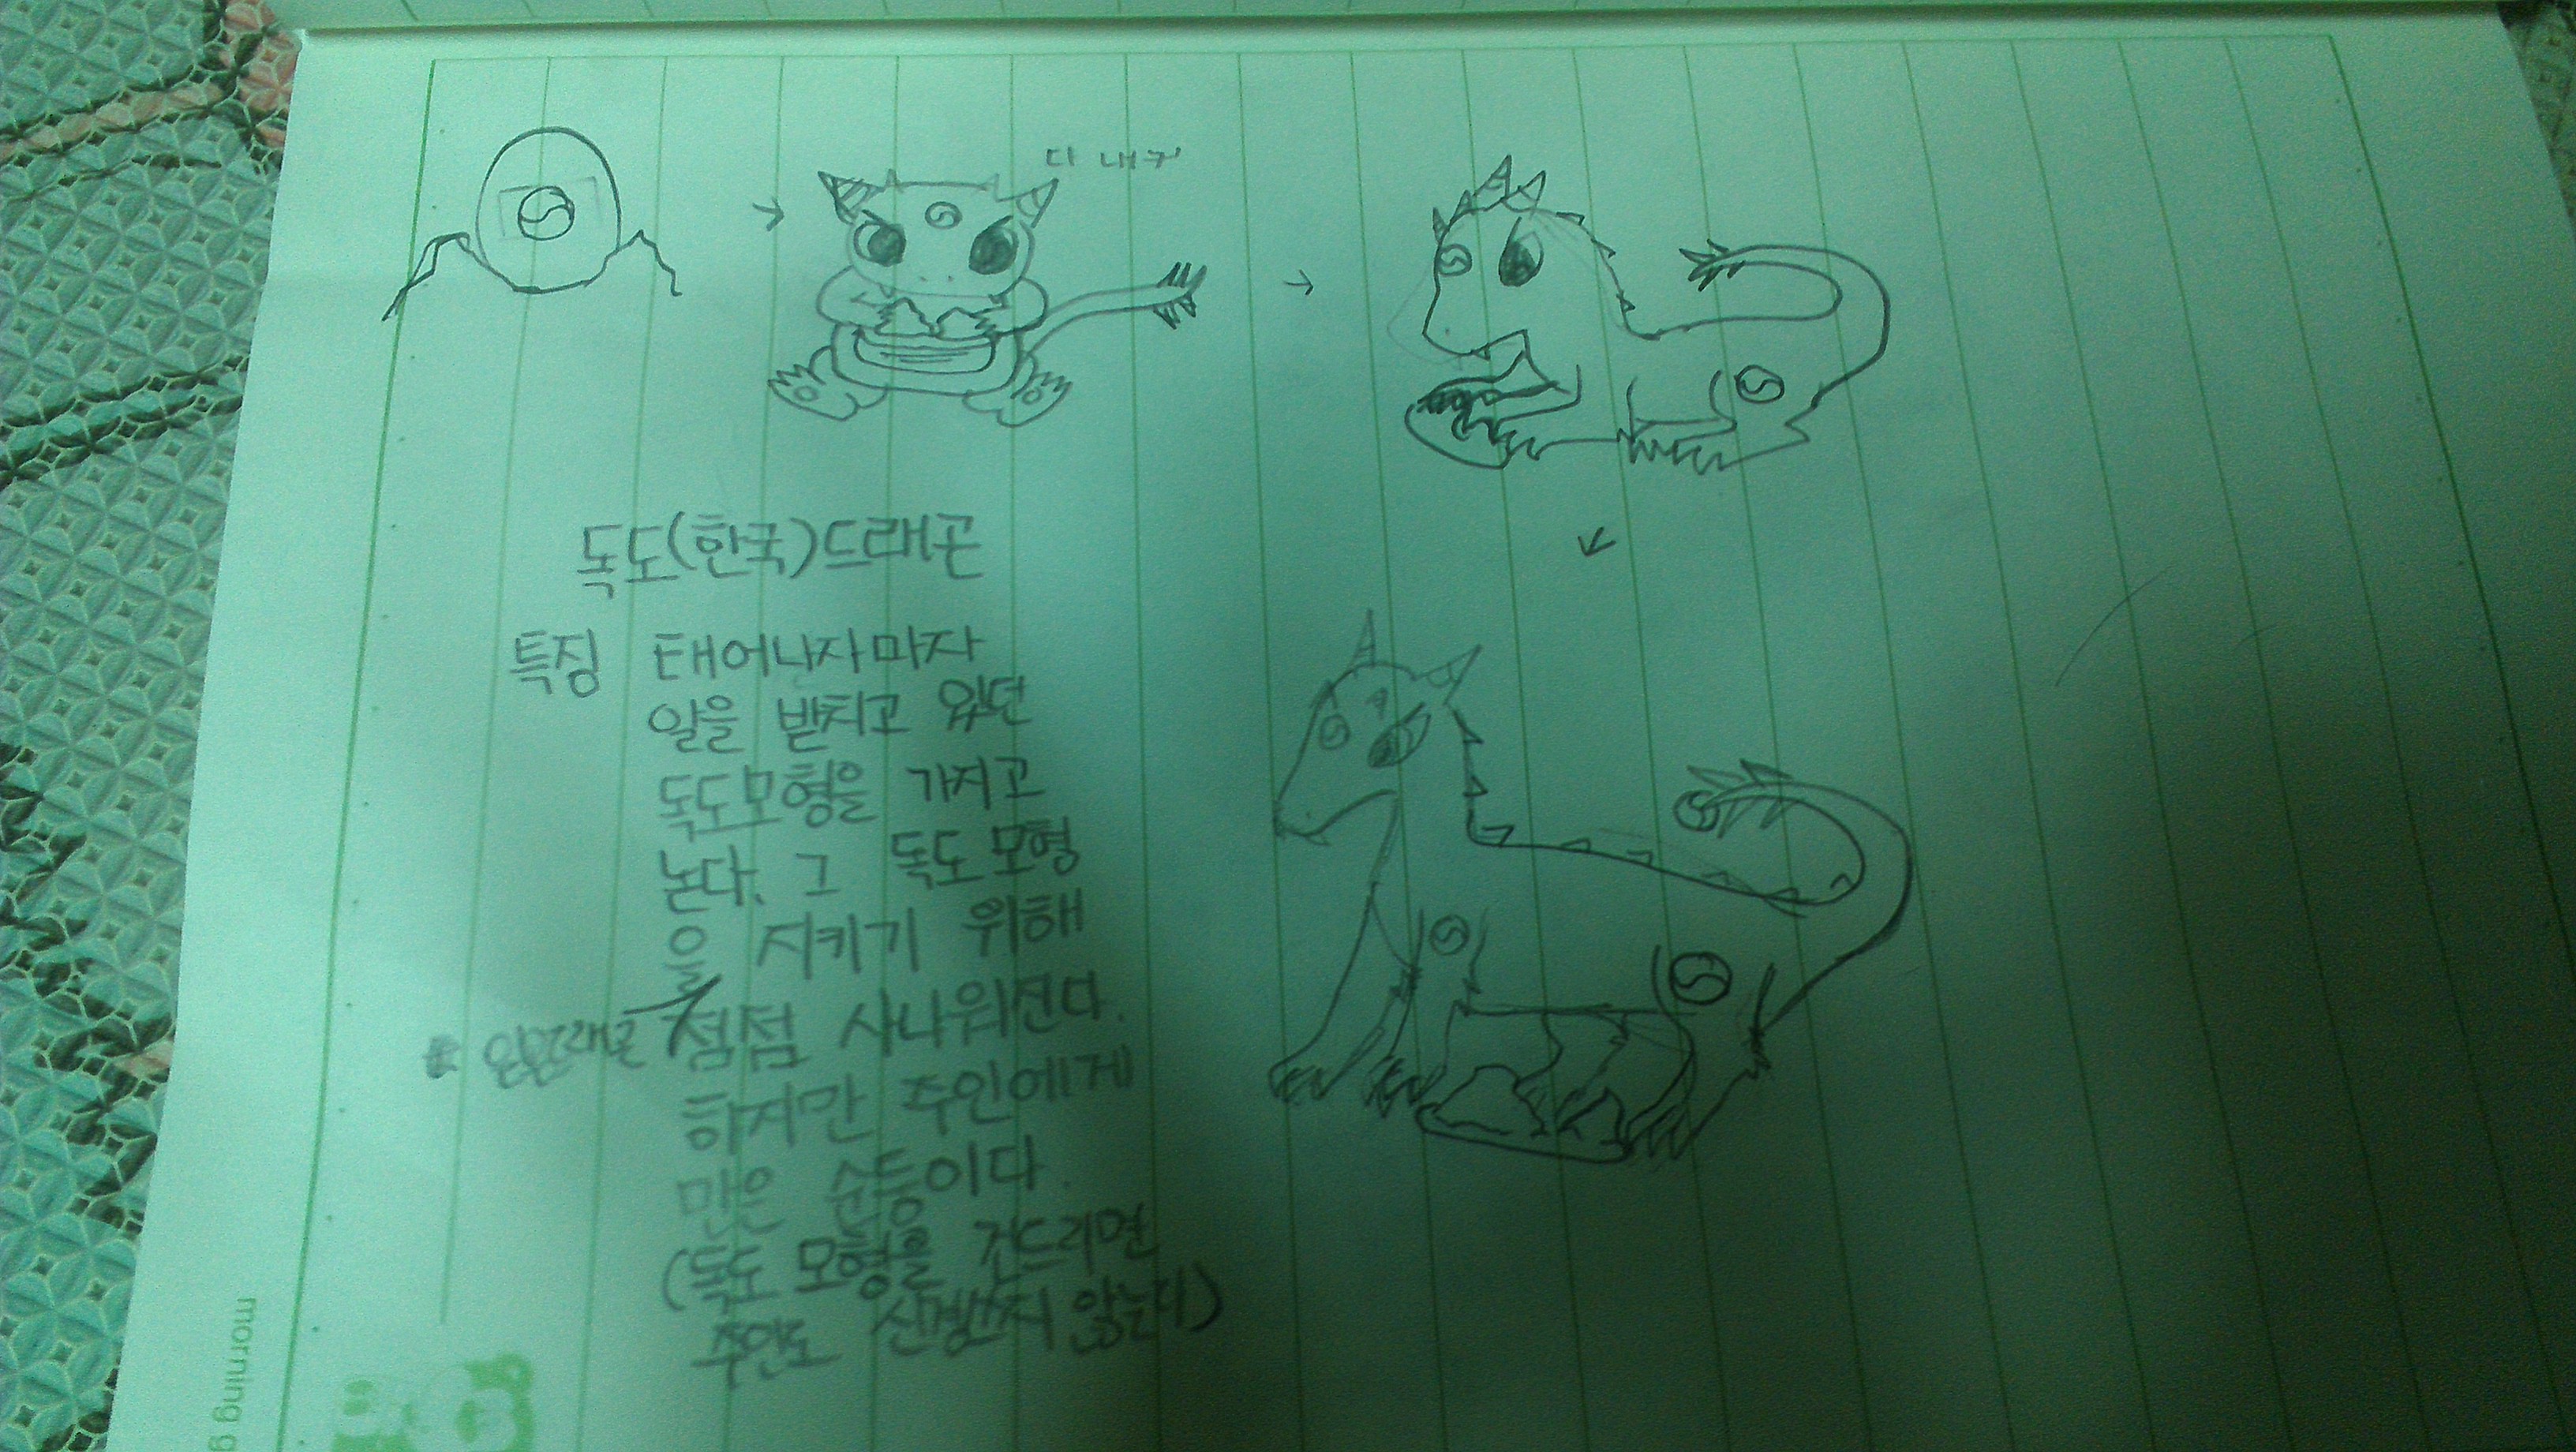 다 내꺼
독도(한국)드래곤
특징 태어나자마자
알을 받치고 있던
독도모형을 가지고
논다. 그 독도모형
을 지키기 위해
점점 사나워진다.
하지만 주인에게
만은 순둥이다.
(독도 모형을 건드리면
주인도 신경쓰지 않는다)
morning g